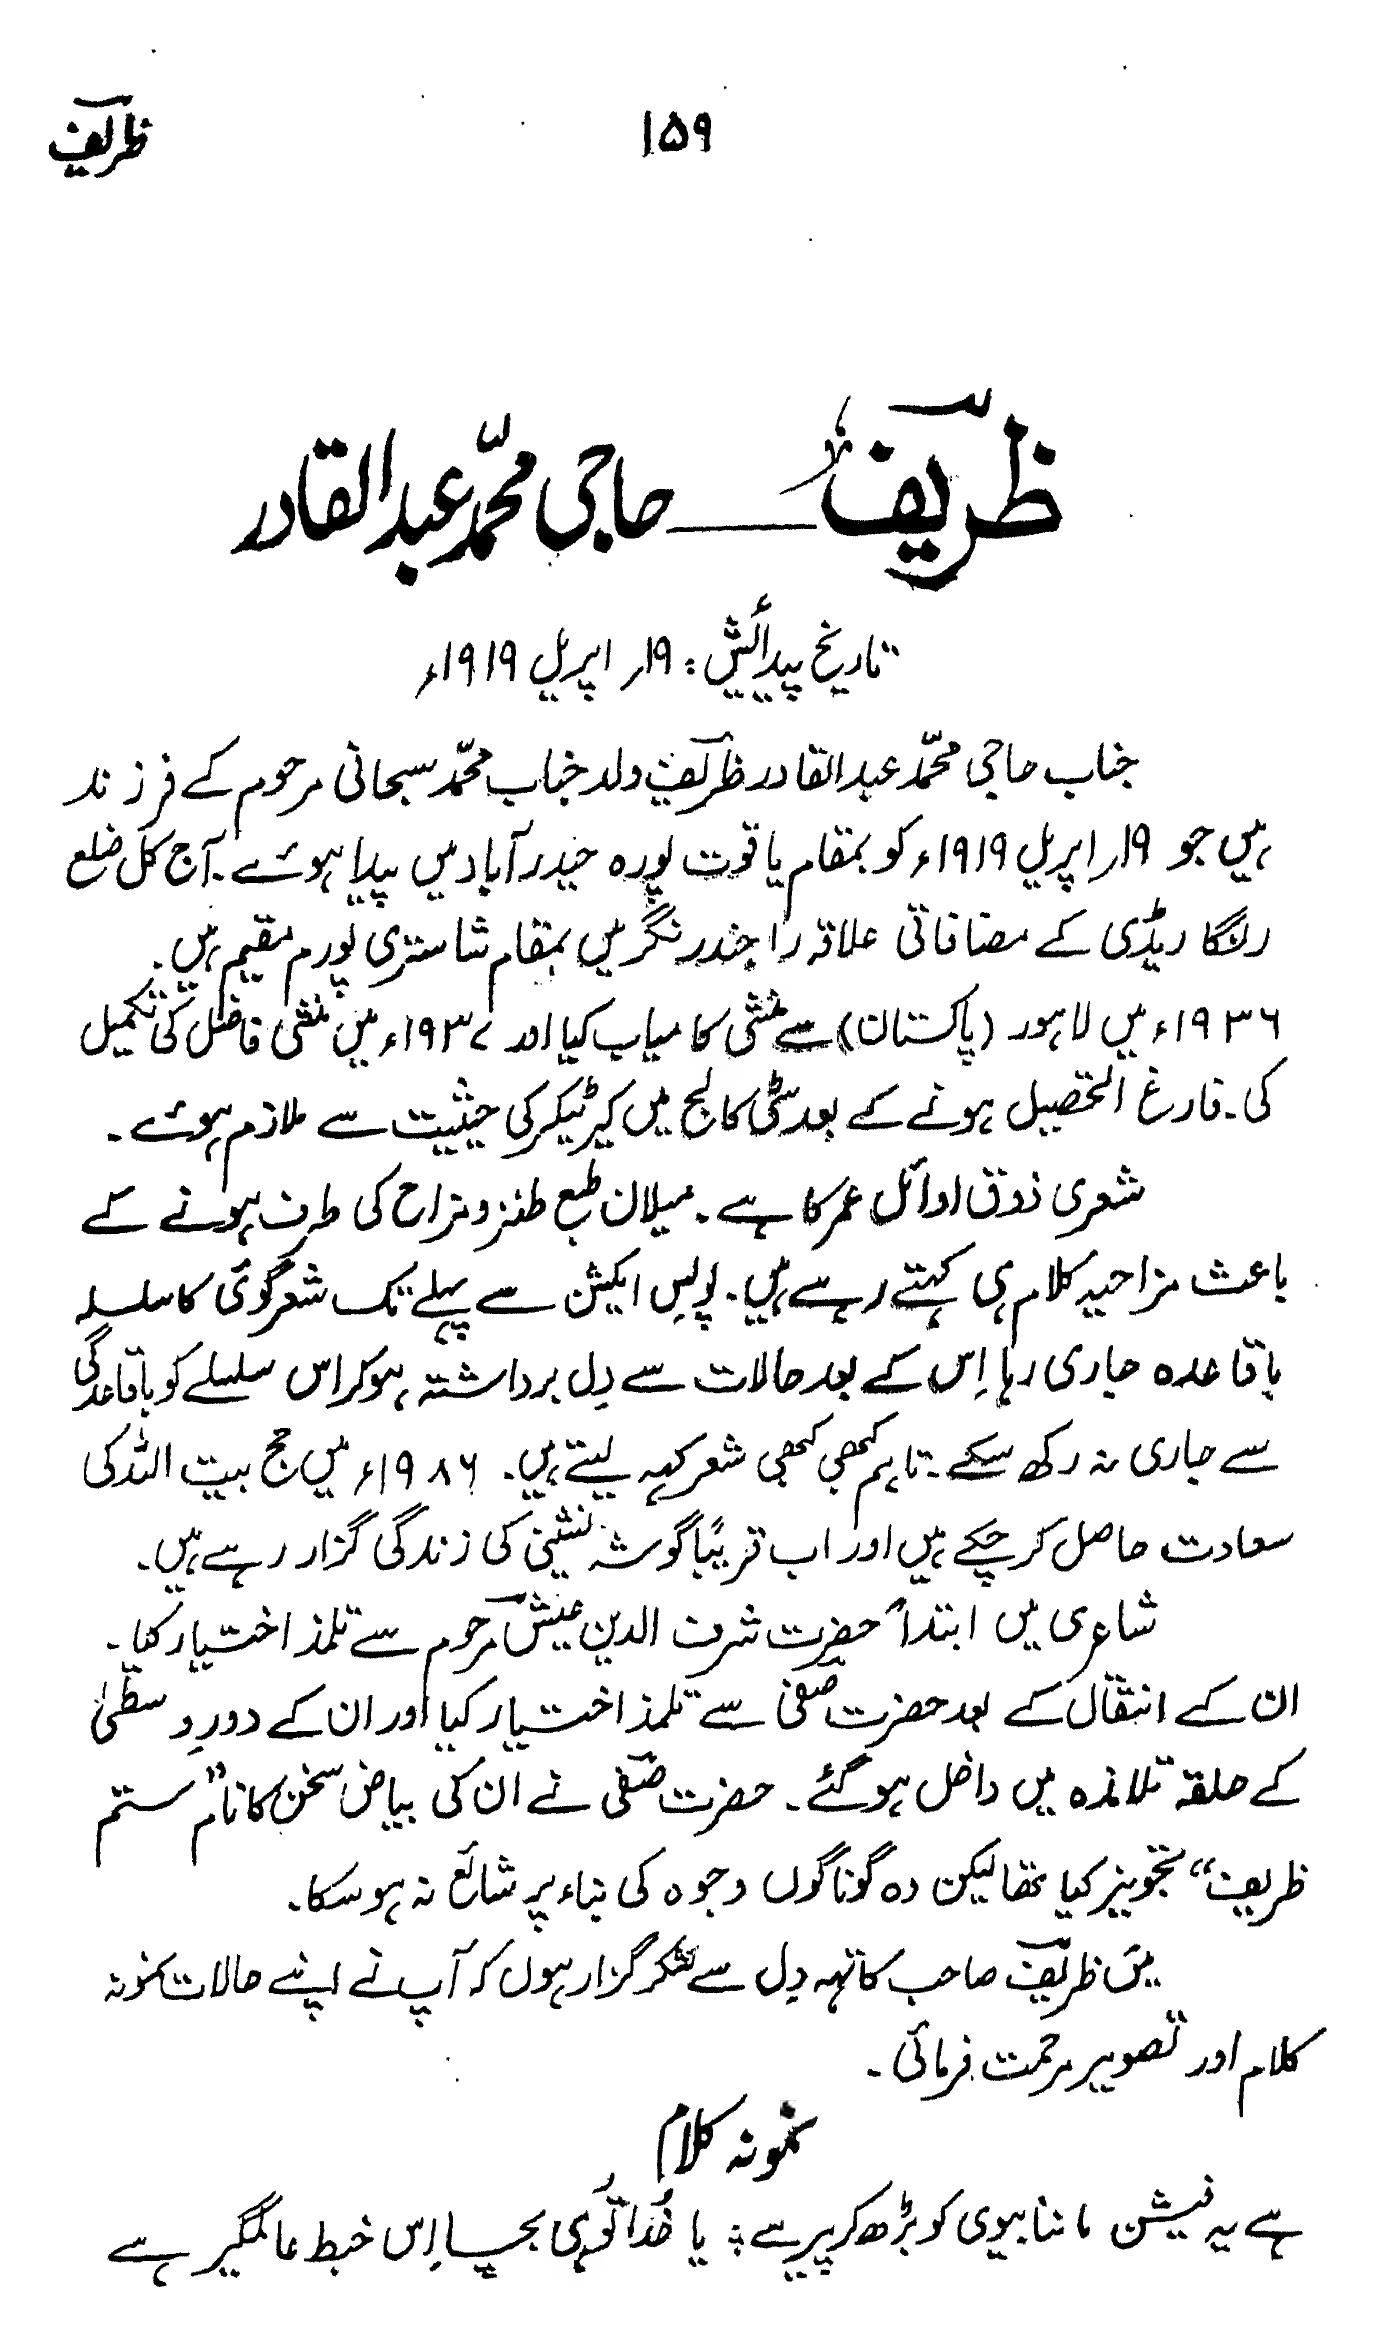 ۱۵۹
ظریف
ظریف — حاجی محمّد عبدالقادر
تاریخ پیدائش: ۱۹؍ اپریل ۱۹۱۹ء
جناب حاجی محمّد عبدالقادر ظریف ولد جناب محمّد سبحانی مرحوم کے فرزند
ہیں جو ۱۹؍اپریل ۱۹۱۹ء کو بمقام یاقوت پورہ حیدرآباد میں پیدا ہوئے۔ آج کل ضلع
رنگا ریڈی کے مضافاتی علاقہ راجندر نگر میں بمقام شاستری پورم مقیم ہیں۔
۱۹۳۶ء میں لاہور (پاکستان) سے منشی کامیاب کیا اور ۱۹۳۷ء میں منشی فاضل کی تکمیل
کی۔ فارغ التحصیل ہونے کے بعد سٹی کالج میں کیرٹیکر کی حیثیت سے ملازم ہوئے۔
شعری ذوق اوائل عمر کا ہے۔ میلان طبع طنز و مزاح کی طرف ہونے کے
باعث مزاحیہ کلام ہی کہتے رہے ہیں۔ پولیس ایکشن سے پہلے تک شعر گوئی کا سلسلہ
باقاعدہ جاری رہا اِس کے بعد حالات سے دِل برداشتہ ہوکر اس سلسلے کو باقاعدگی
سے جاری نہ رکھ سکے۔ تاہم کبھی کبھی شعر کہہ لیتے ہیں۔ ۱۹۸۶ء میں حج بیت اللہ کی
سعادت حاصل کرچکے ہیں اور اب قریبًا گوشہ نشینی کی زندگی گزار رہے ہیں۔
شاعری میں ابتداً حضرت شرف الدین عیش مرحوم سے تلمذ اختیار کیا۔
ان کے انتقال کے بعد حضرت صفی سے تلمذ اختیار کیا اور ان کے دورِ وسطیٰ
کے حلقہ تلامذہ میں داخل ہوگئے۔ حضرت صفی نے ان کی بیاض سخن کا نام ”ستم
ظریف“ تجویز کیا تھا لیکن وہ گوناگوں وجوہ کی بناء پر شائع نہ ہوسکا۔
میں ظریف صاحب کا تہہ دِل سے شکر گزار ہوں کہ آپ نے اپنے حالات نمونہ
کلام اور تصویر مرحمت فرمائی۔
نمونہ کلام
ہے یہ فیشن ماننا بیوی کو بڑھ کر پیر سے ؛ یا خُدا تُو ہی بچا اِس خبط عالمگیر سے